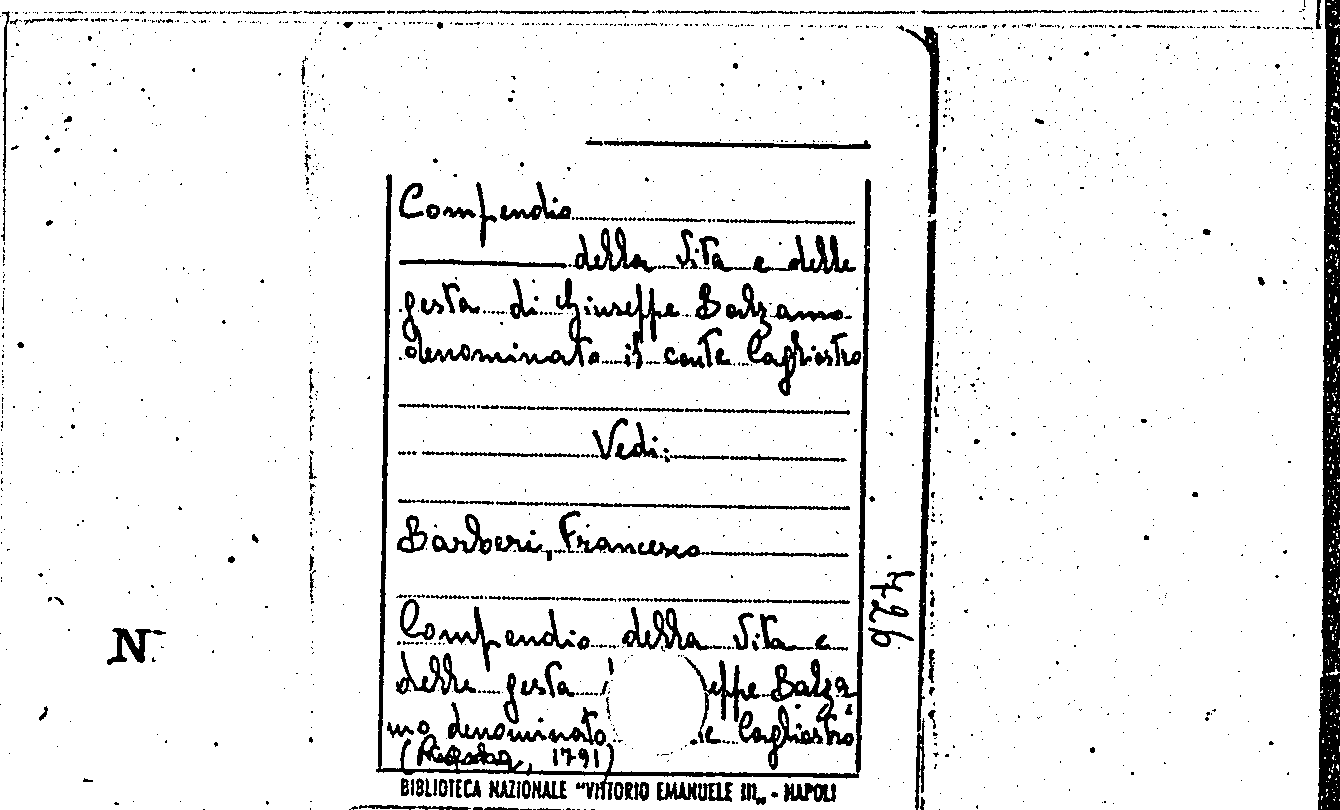 Compendio
della vita e delle
gesta di Giuseppe Balzamo
denominato il conte Cagliostro
Vedi:
Barberi, Francesco
Compendio della vita e
delle gesta eppe Balza
mo denominato e Cagliostro
( , 1791)
BIBLIOTECA NAZIONALE "VITTORIO EMANUELE III„ - NAPOLI
426
N